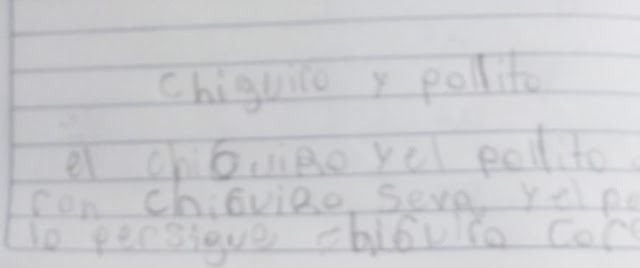 chiguiro y pollito
el chiGuiRo y el pollito
con chiGuiRo Seva y el po
lo persigue chiGuiro Cor